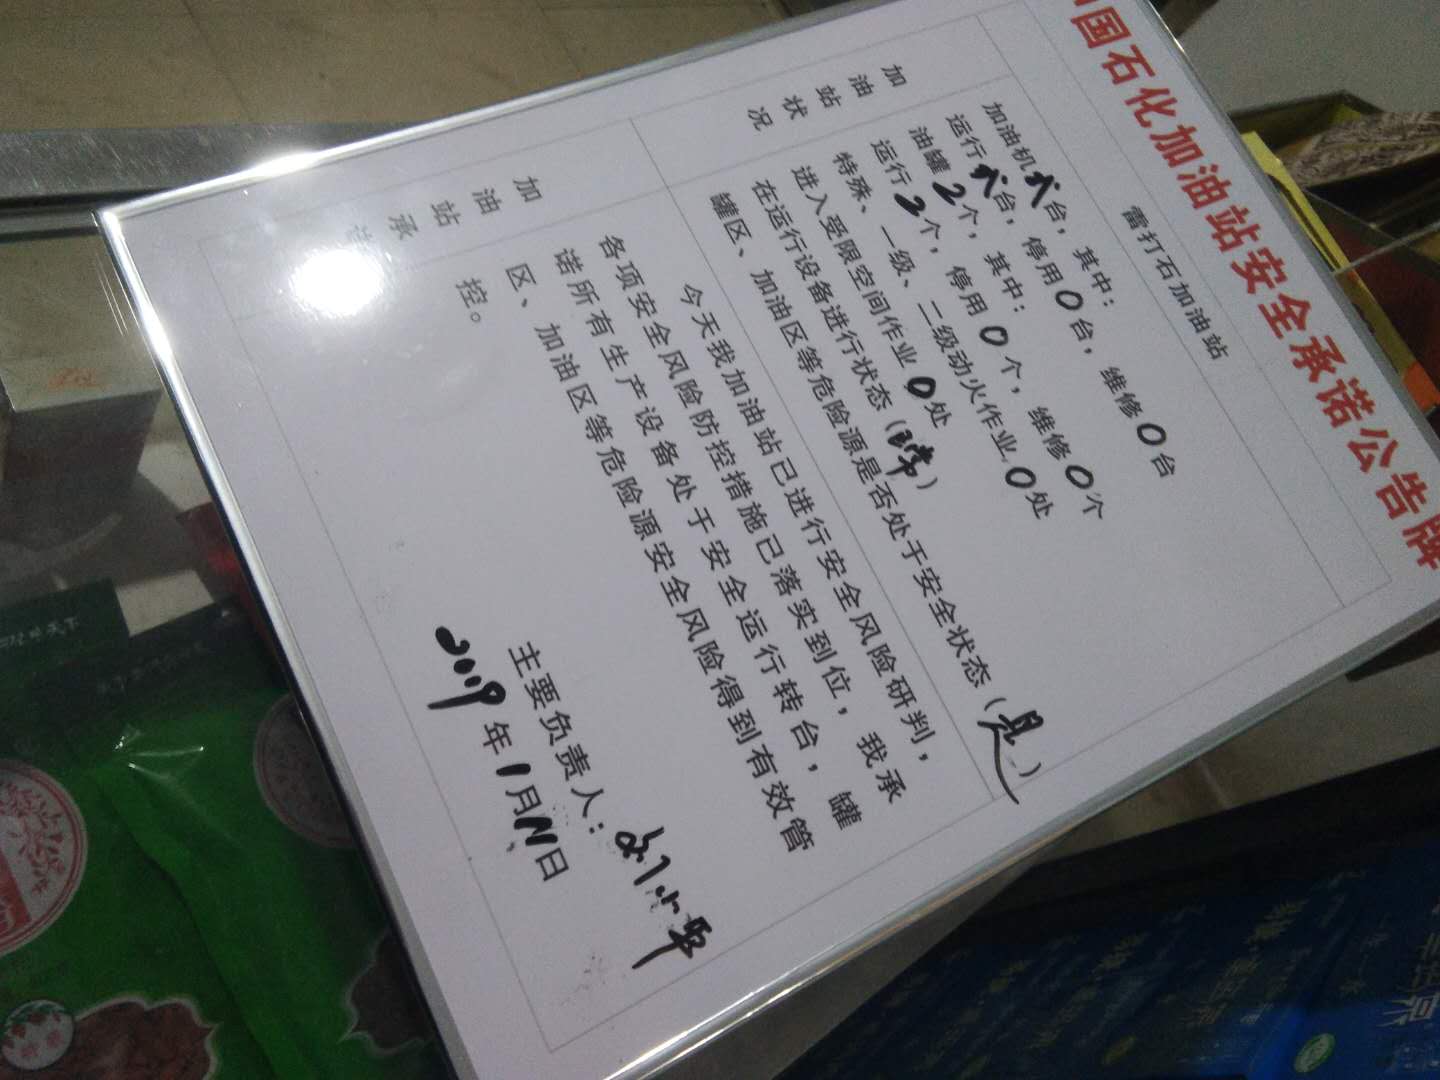 国石化加油站安全承诺公告牌
雷打石加油站
加油站状况
加油机 台，其中：
运行 台，停用0台，维修0台
油罐2个，其中：
运行2个，停用0个，维修0个
特殊、一级、二级动火作业0处
进入受限空间作业0处
在运行设备进行状态（正常）
罐区、加油区等危险源是否处于安全状态（是）
加油站承诺
今天我加油站已进行安全风险研判，
各项安全风险防控措施已落实到位，我承
诺所有生产设备处于安全运行转台，罐
区、加油区等危险源安全风险得到有效管
控。
主要负责人：刘小军
2019年1月 日